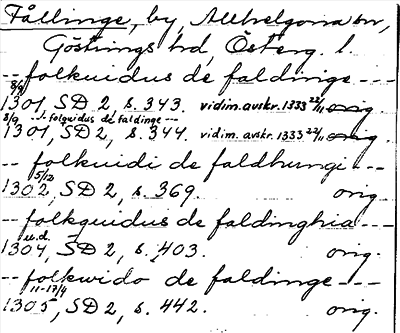 Fållinge, by, Allhelgona sn,
Göstrings hd, Österg. l.
-- folkuidus de faldinge ---
8/9
1301, SD 2, s. 343. vidim. avskr. 1333 22/11 orig
8/9 --- folquidus de faldinge ---
1301, SD 2, s. 344. vidim. avskr. 1333 22/11 orig
-- folkuidi de faldhungi ---
5/12
1302, SD 2, s. 369. orig.
-- folkquidus de faldinghia ---
u.d.
1304, SD 2, s. 403. orig.
-- folkwido de faldinge ---
11-17/4
1305, SD 2, s. 442. orig.